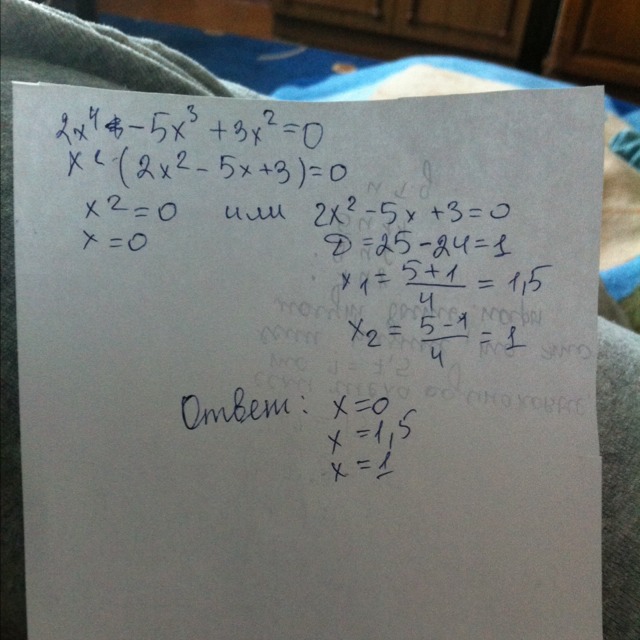 2x⁴ - 5x³ + 3x² = 0
x² (2x² - 5x + 3) = 0
x² = 0 или 2x² - 5x + 3 = 0
x = 0 D = 25 - 24 = 1
x₁ = (5+1)/4 = 1,5
x₂ = (5-1)/4 = 1
Ответ: x = 0
x = 1,5
x = 1